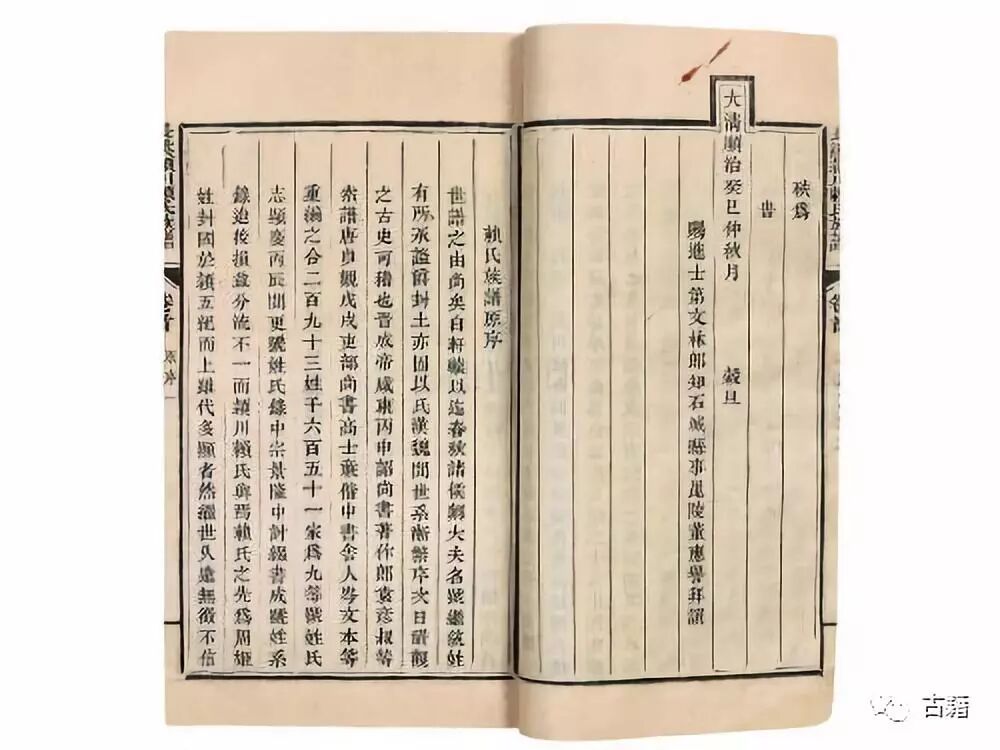 秩爲
書
大清順治癸巳仲秋月 穀旦
賜進士第文林郎知石城縣事毘陵董應譽拜譔
賴氏族譜原序
世譜之由尚矣自軒轅以迄春秋諸侯卿大夫名號繼統姓
有所承證爵封土亦因以氏漢魏間世系漸繁序次日
之古史可稽也晉成帝咸康丙申部尚書著作郎袁彥叔等
宗譜唐貞觀戊戌吏部尚書高士廉偕中書舍人岑文本等
重 之合二百九十三姓千六百五十一家爲九等 姓氏
志顯慶丙辰間更號姓氏錄中宗景隆中 書成 姓系
錄迨後損益分流不一而潁川賴氏與晉賴氏之先爲周姬
姓封國於潁五 而上雖代多顯者然 世久遠無徵不信
卷首
古籍